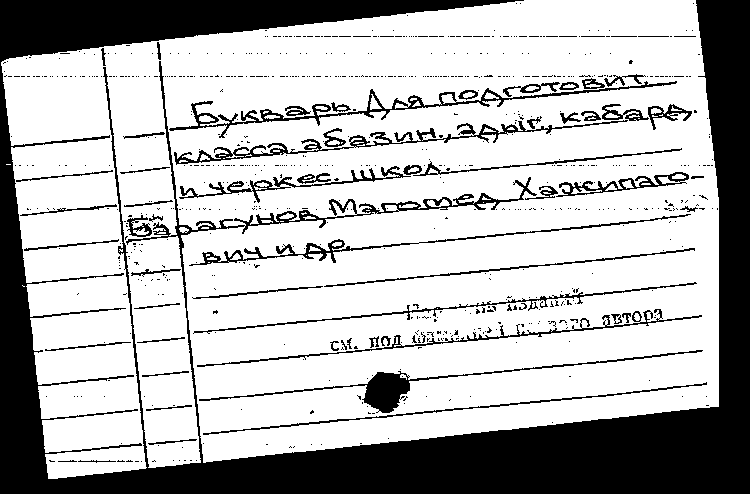 Букварь. Для подготовит.
класса абазин., адыг., кабард.
и черкес. школ.
Барагунов, Магомед Хажипаго-
вич и др.
Перечень изданий
см. под фамилией первого автора